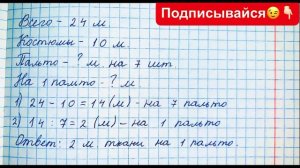 Подписывайся😉👇
Всего - 24 м
Костюмы - 10 м.
Пальто - ? м на 7 шт
На 1 пальто - ? м.
1) 24 - 10 = 14 (м) - на 7 пальто
2) 14 : 7 = 2 (м) - на 1 пальто
Ответ: 2 м ткани на 1 пальто.